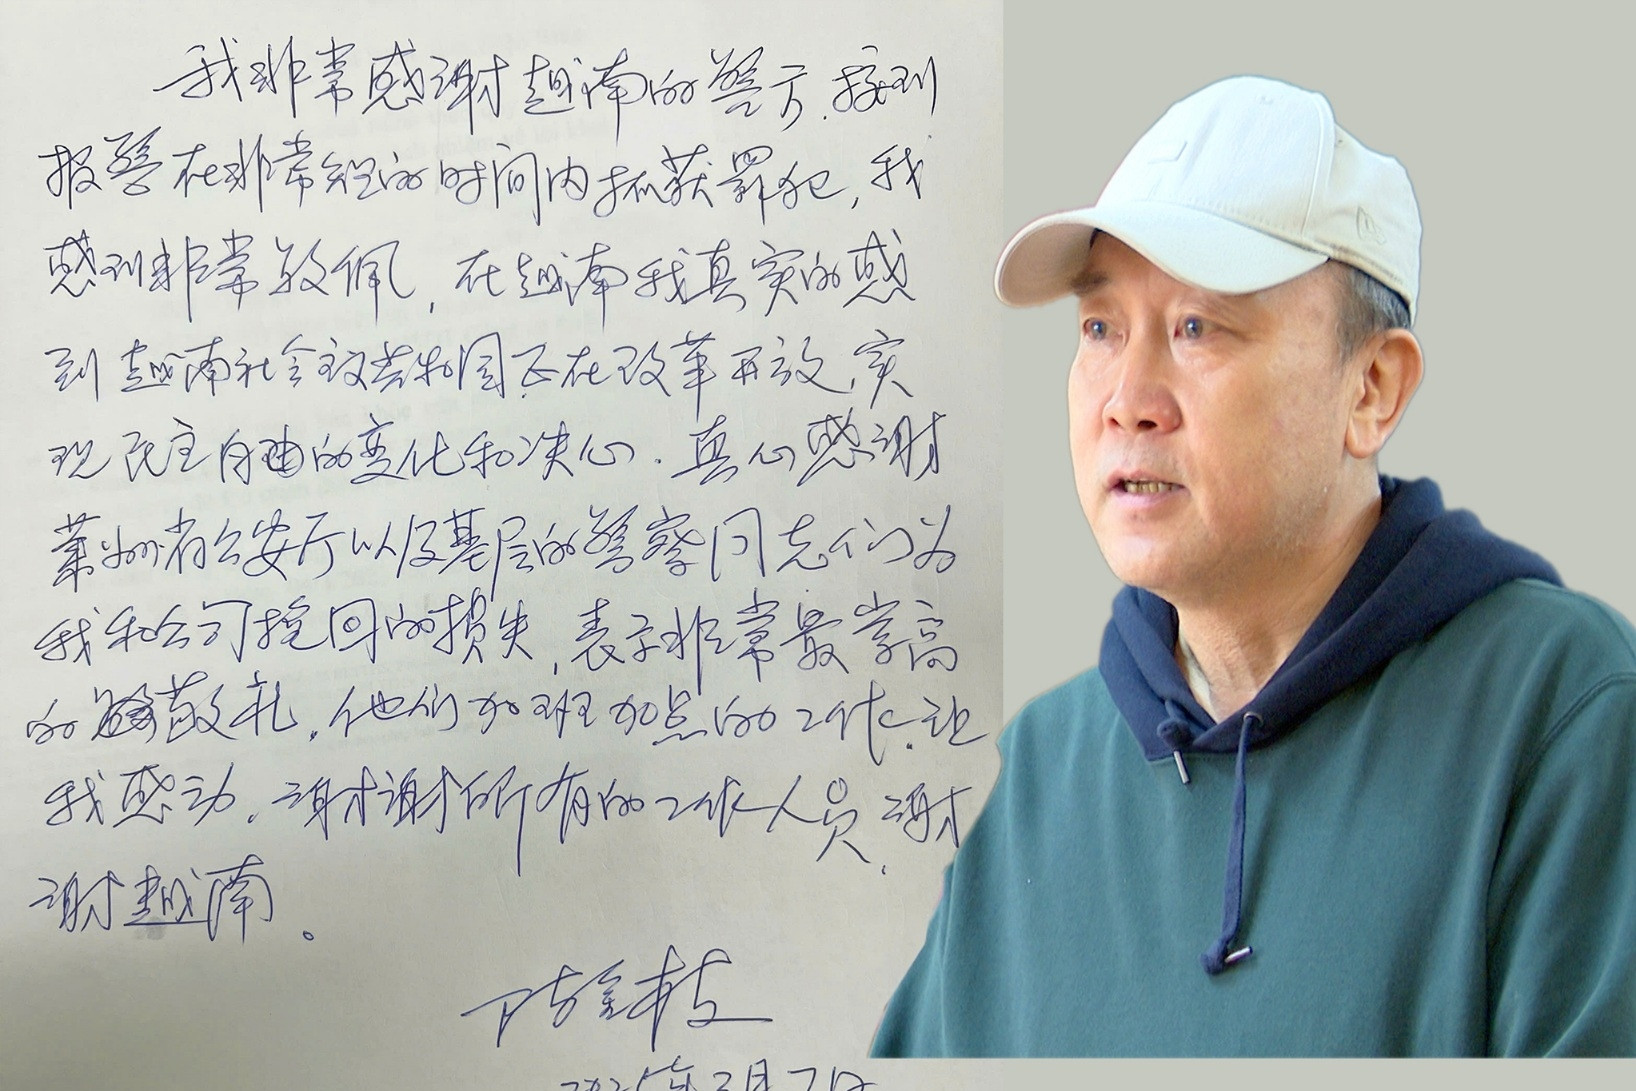 我非常感谢越南的警方,接到
报警在非常短的时间内抓获罪犯,我
感到非常敬佩,在越南我真实的感
到越南社会主义共和国正在改革开放,实
现民主自由的变化和决心.真心感谢
莱州省公安厅以及基层的警察同志们为
我和公司挽回的损失,表示非常最崇高
的敬礼,他们加班加点的工作,让
我感动.谢谢所有的工作人员,谢
谢越南。
2025年3月7日